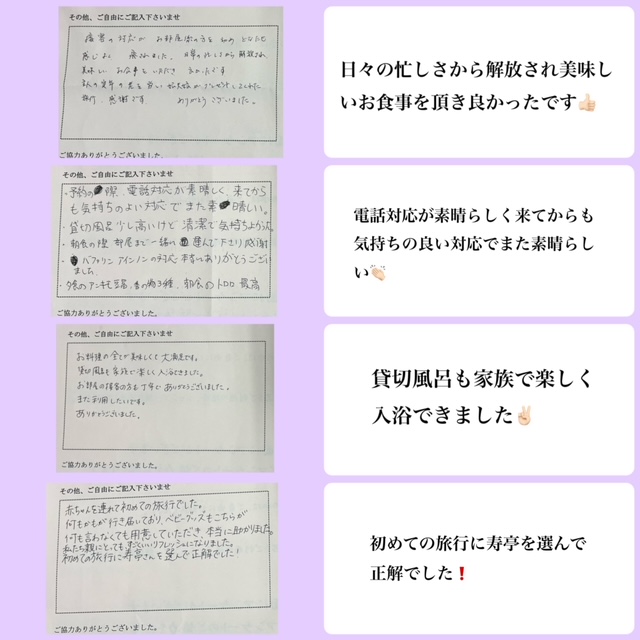 その他、ご自由にご記入下さいませ
接客の対応が お部屋係の方を始め どなたも
感じよく
日々の忙しさから解放され
美味しい お食事を いただき 良かったです
感謝です ありがとうございました。
ご協力ありがとうございました。
日々の忙しさから解放され美味し
いお食事を頂き良かったです👍🏻
その他、ご自由にご記入下さいませ
・予約の際、電話対応が素晴しく、来てから
も気持ちのよい対応でまた素晴しい。
・貸切風呂少し高いけど清潔で気持ちよかった。
・朝食の際 部屋まで一緒に 選んで下さり感謝
・バファリン アイスノンの対応 本当にありがとうござい
ました。
・夕食のアンキモ豆腐、香の物3種、朝食のトロロ 最高
ご協力ありがとうございました。
電話対応が素晴らしく来てからも
気持ちの良い対応でまた素晴らし
い👏🏻
その他、ご自由にご記入下さいませ
お料理の全てが美味しくて大満足です。
貸切風呂も家族で楽しく入浴できました。
お部屋の接客の方も丁寧で ありがとうございました。
また利用したいです。
ありがとうございました。
ご協力ありがとうございました。
貸切風呂も家族で楽しく
入浴できました✌🏻
その他、ご自由にご記入下さいませ
赤ちゃんを連れて初めての旅行でした。
何もかもが行き届いており、ベビーグッズもこちらが
何も言わなくても用意していただき、本当に助かりました。
私たち親にとっても、すごくいいリフレッシュになりました。
初めての旅行に寿亭さんを選んで正解でした!
ご協力ありがとうございました。
初めての旅行に寿亭を選んで
正解でした❗